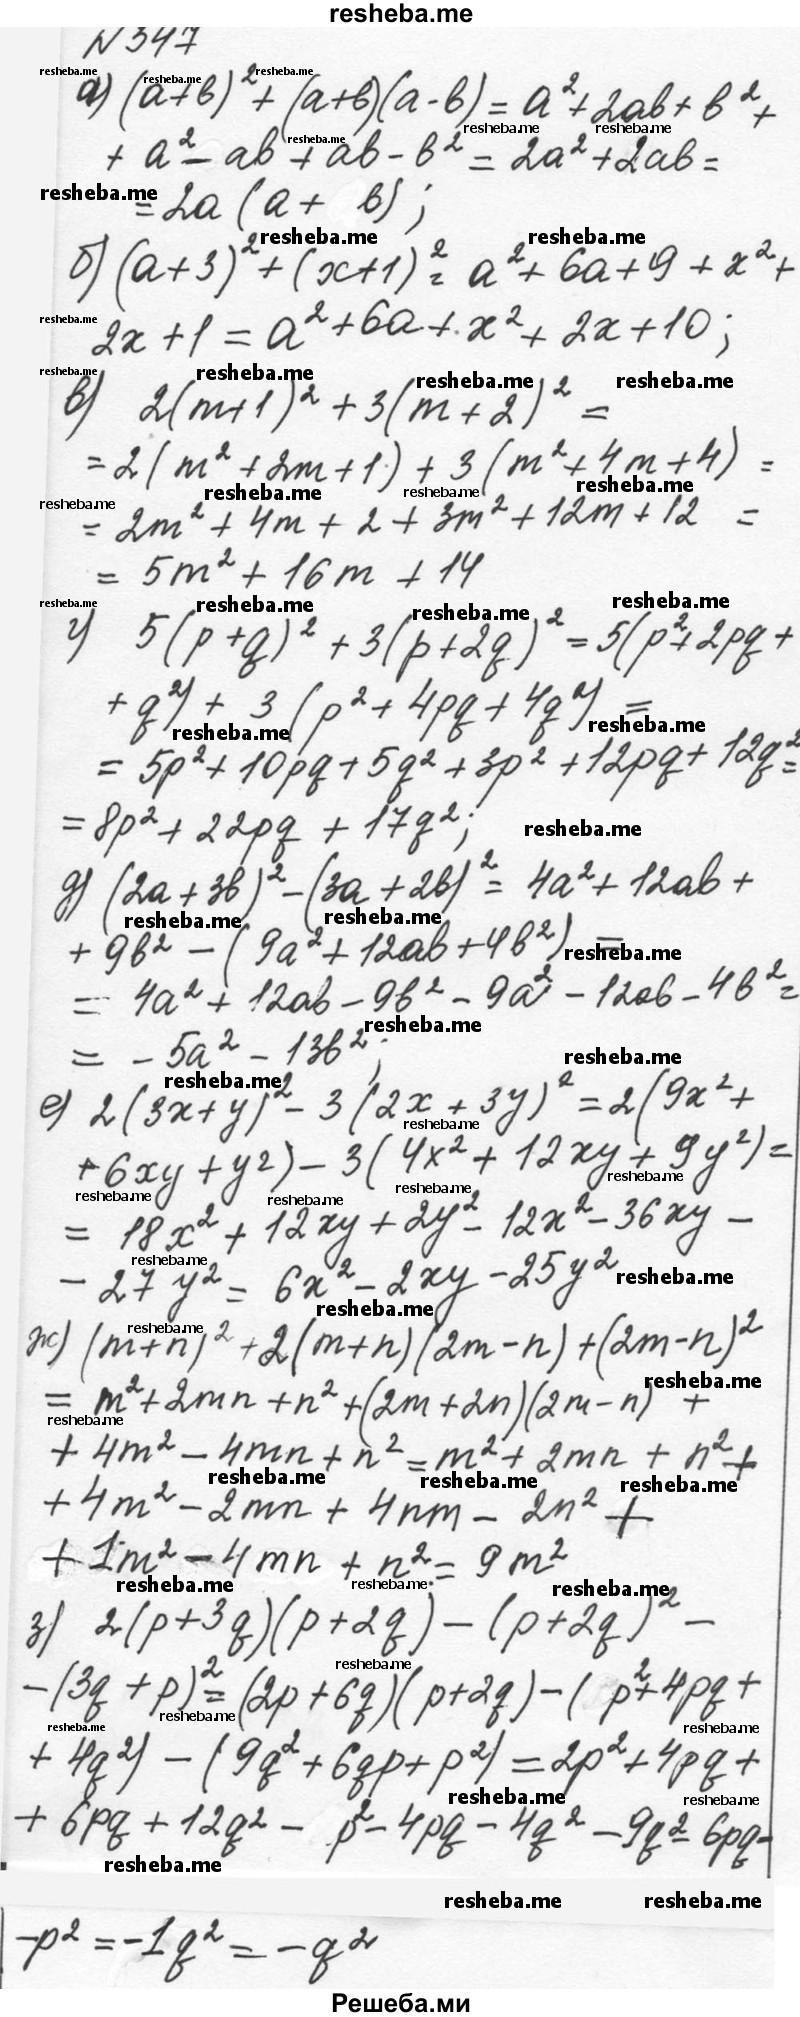 resheba.me
N 347
а) (a+b)² + (a+b)(a-b) = a² + 2ab + b² +
+ a² - ab + ab - b² = 2a² + 2ab =
= 2a (a + b);
б) (a+3)² + (x+1)² = a² + 6a + 9 + x² +
2x + 1 = a² + 6a + x² + 2x + 10;
в) 2(m+1)² + 3(m+2)² =
= 2(m² + 2m + 1) + 3(m² + 4m + 4) =
= 2m² + 4m + 2 + 3m² + 12m + 12 =
= 5m² + 16m + 14
г) 5(p+q)² + 3(p+2q)² = 5(p² + 2pq +
+ q²) + 3(p² + 4pq + 4q²) =
= 5p² + 10pq + 5q² + 3p² + 12pq + 12q² =
= 8p² + 22pq + 17q²;
д) (2a+3b)² - (3a+2b)² = 4a² + 12ab +
+ 9b² - (9a² + 12ab + 4b²) =
= 4a² + 12ab - 9b² - 9a² - 12ab - 4b² =
= - 5a² - 13b²;
е) 2(3x+y)² - 3(2x+3y)² = 2(9x² +
+ 6xy + y²) - 3(4x² + 12xy + 9y²) =
= 18x² + 12xy + 2y² - 12x² - 36xy -
- 27y² = 6x² - 2xy - 25y²
ж) (m+n)² + 2(m+n)(2m-n) + (2m-n)²
= m² + 2mn + n² + (2m+2n)(2m-n) +
+ 4m² - 4mn + n² = m² + 2mn + n² +
+ 4m² - 2mn + 4nm - 2n² +
+ 1m² - 4mn + n² = 9m²
з) 2(p+3q)(p+2q) - (p+2q)² -
- (3q+p)² = (2p+6q)(p+2q) - (p² + 4pq +
+ 4q²) - (9q² + 6qp + p²) = 2p² + 4pq +
+ 6pq + 12q² - p² - 4pq - 4q² - 9q² - 6pq -
- p² = -1q² = -q²
Решеба.ми